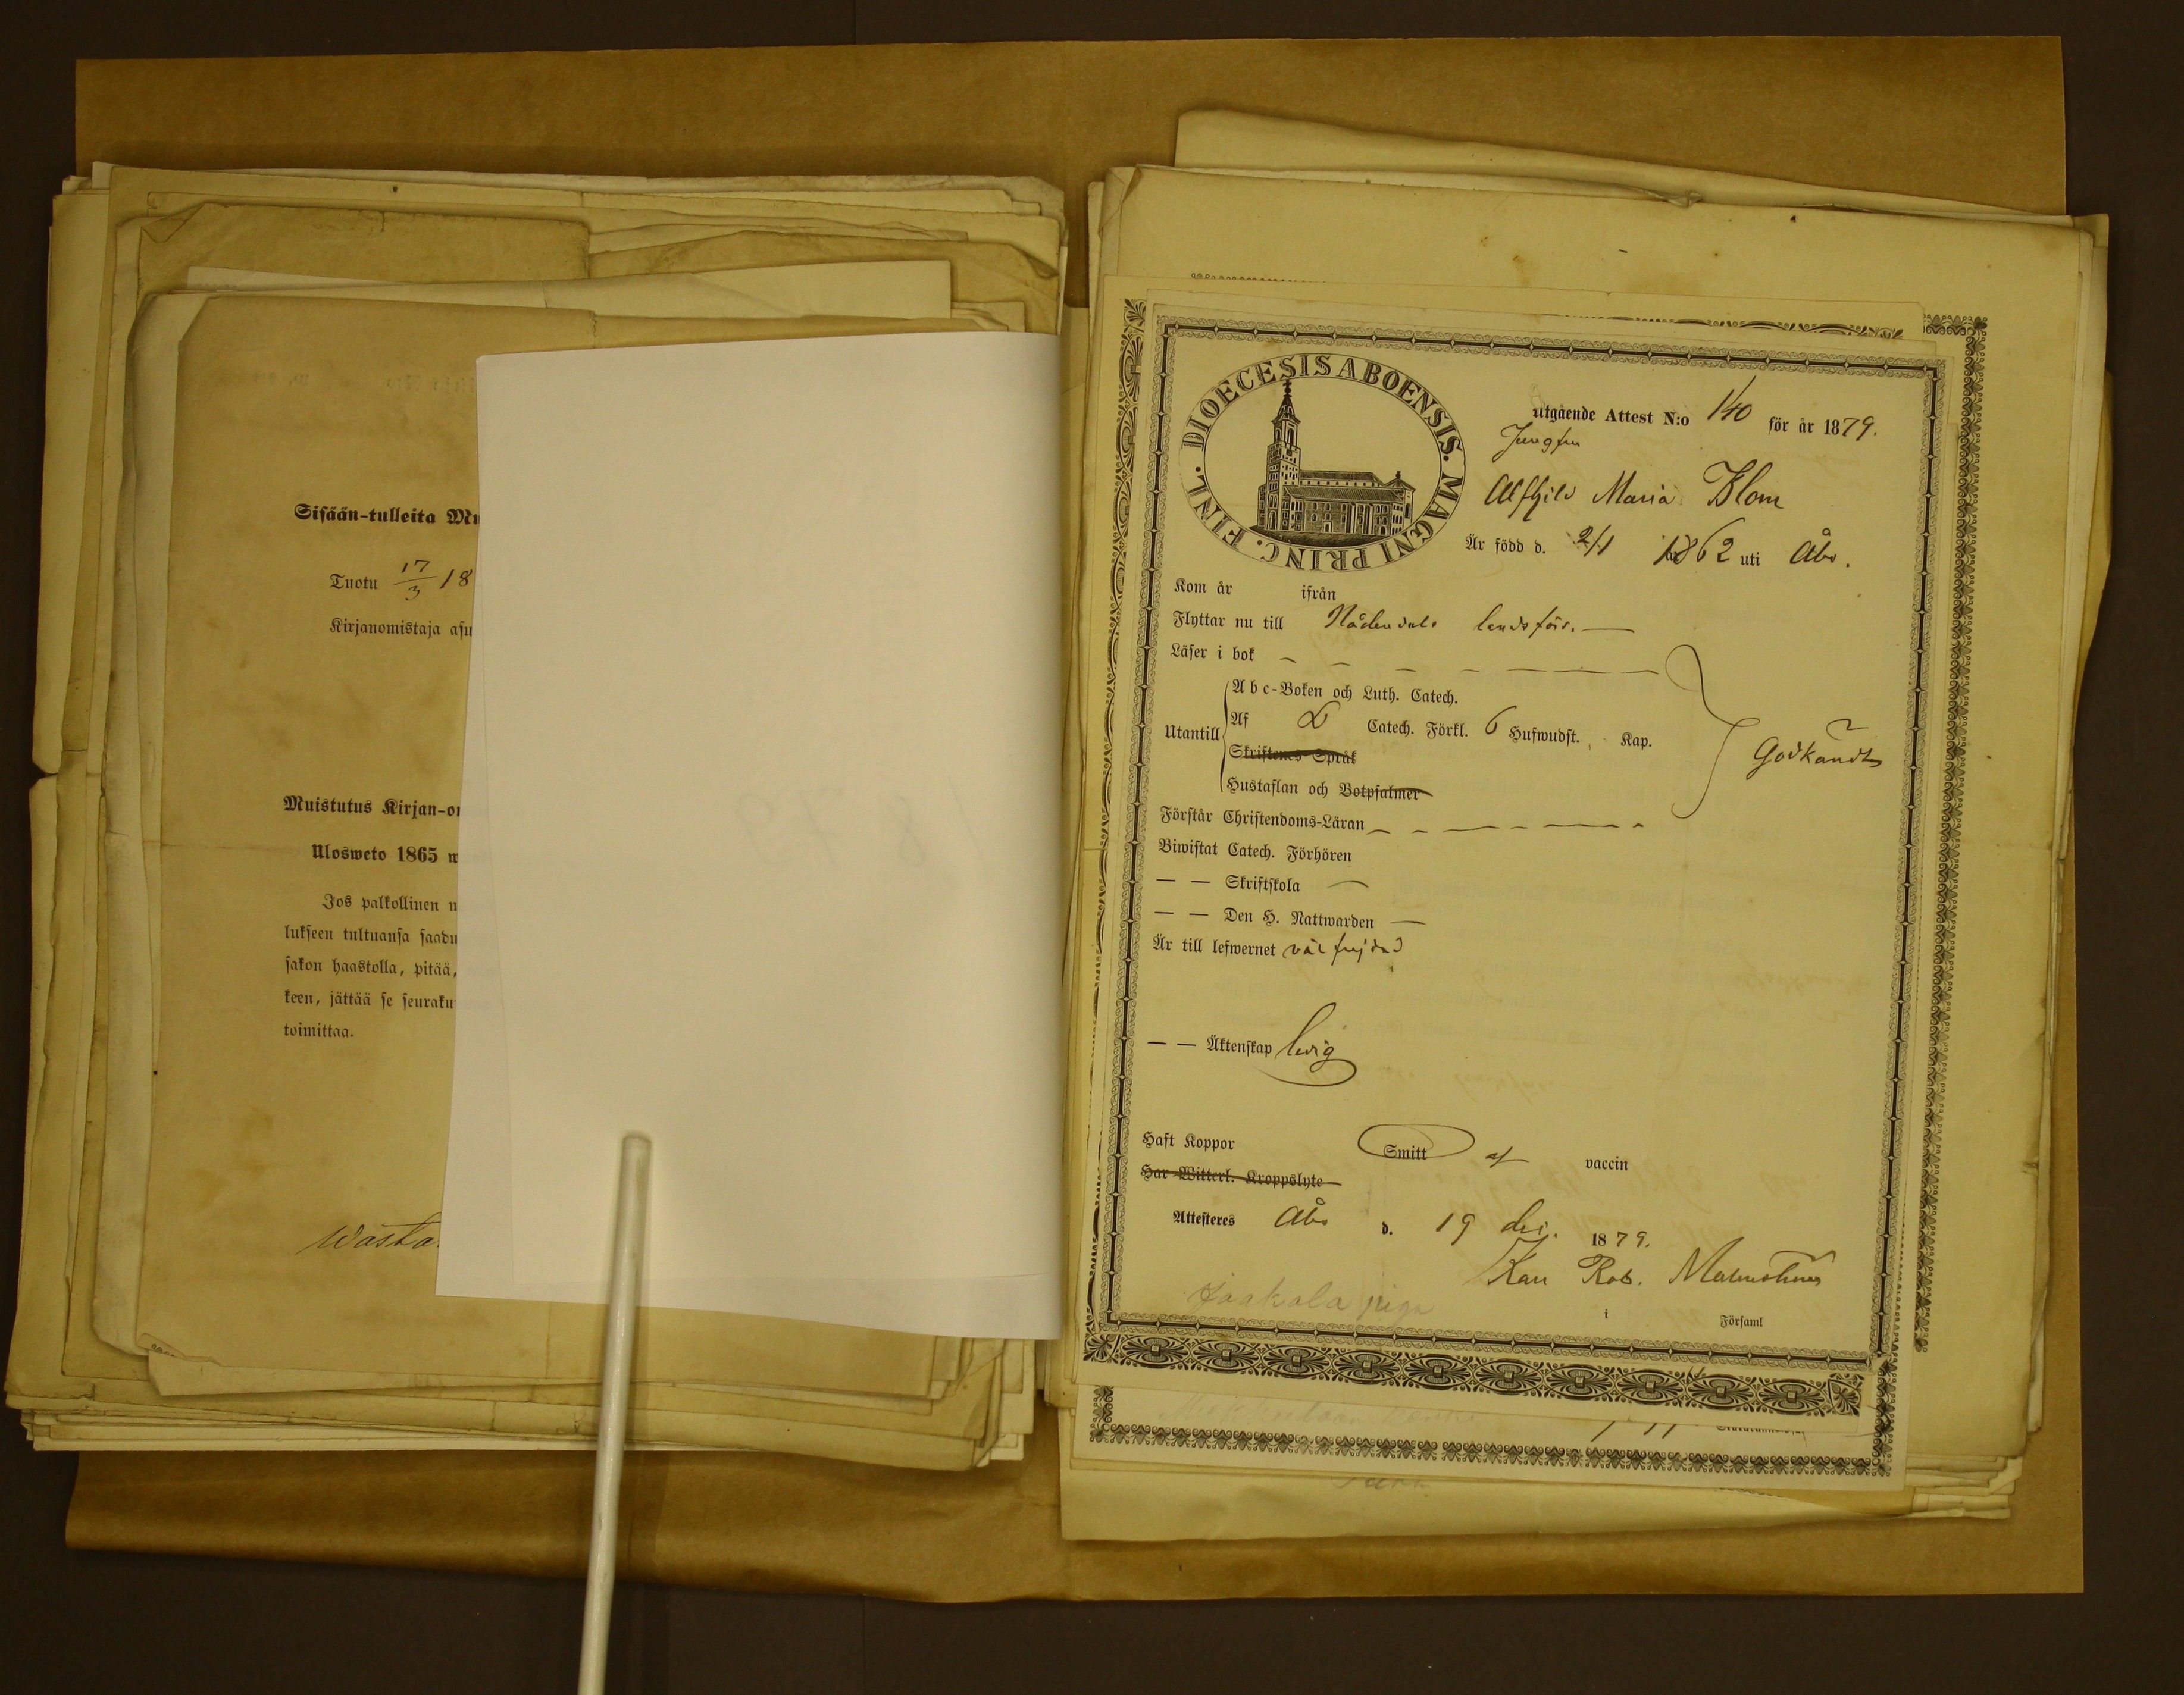 Sisään-tulleita Mu
Tuotu 17/3 18
Kirjanomistaja asu
Muistutus Kirjan-o
Ulosweto 1865
Jos palkollinen
lukseen tultuansa saadu
sakon haastolla, pitää,
keen, jättää se seuraku
toimittaa.
Wasta
DIOECESIS ABOENSIS. MAGNI PRINC. FINL.
utgående Attest N:o 140 för år 1879.
Jungfru
Alfhild Maria Blom
Är född d. 2/1 1862 uti Åbo.
Kom år ifrån
Flyttar nu till Nådendals landsförs. —
Läser i bok
Utantill
Abc-Boken och Luth. Catech.
Af Catech. Förkl. 6 Hufwudst. Kap.
Skriftenes Språk
Hustaflan och Botpsalmer
Godkändt
Förstår Christendoms-Läran
Biwistat Catech. Förhören
— — Skriftskola —
— — Den H. Nattwarden —
Är till lefwernet väl frejdad
— — Äktenskap ledig
Haft Koppor Smitt af vaccin
Har Witterl. Kroppslyte
Attesteres Åbo d. 19 dec. 1879.
Karl Rob. Malmström
Jaakola piga
i Församl